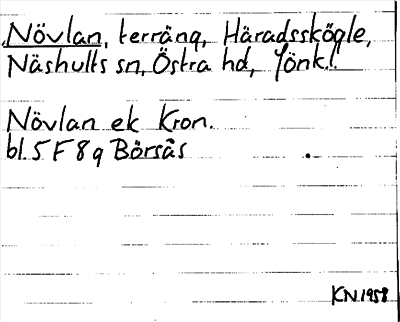 Növlan, terräng, Häradsskögle,
Näshults sn, Östra hd, Jönk.l.
Növlan ek Kron.
bl. 5 F 8 g Börsås
KN 1958